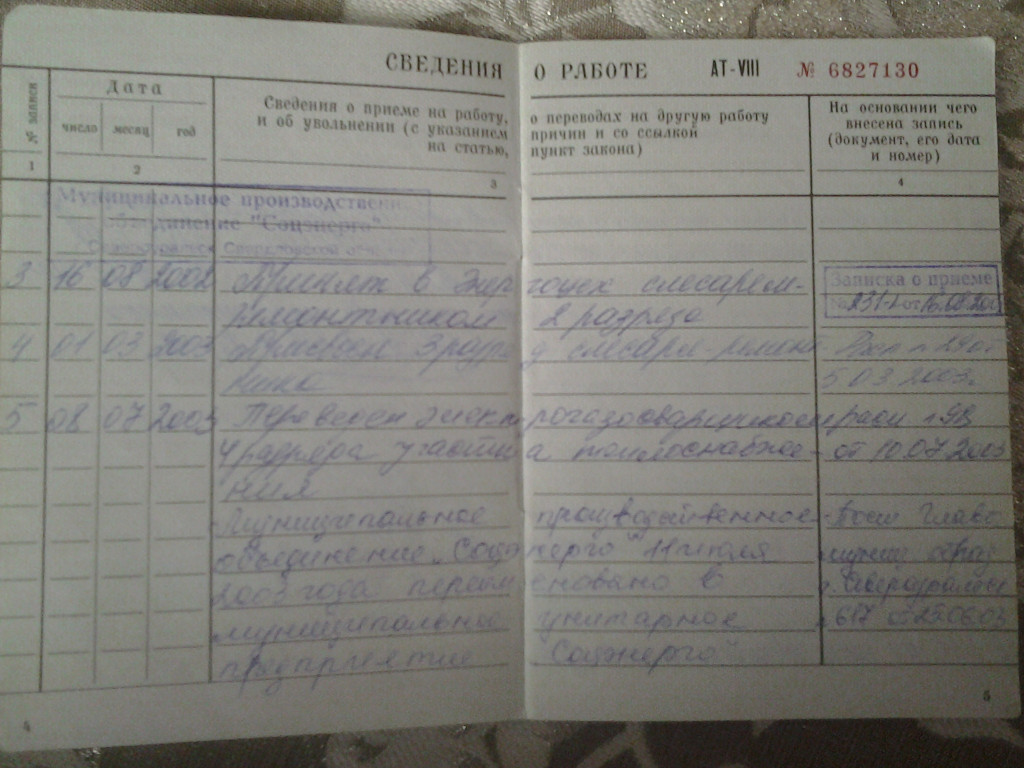 СВЕДЕНИЯ О РАБОТЕ АТ-VIII № 6827130
№ записи
Дата
число месяц год
Сведения о приеме на работу, о переводах на другую работу
и об увольнении (с указанием причин и со ссылкой
на статью, пункт закона)
На основании чего
внесена запись
(документ, его дата
и номер)
1 2 3 4
Муниципальное производственн
объединение "Соцэнерго"
Свердловской
3 16 08 2002 Принят в Энергоцех слесарем-
Записка о приеме
ремонтником 2 разряда
№231-л от 16.08.
4 01 03 2003 Присвоен 3 разряд слесаря-ремонт-
ника
5.03.2003г.
5 08 07 2003 Переведен электрогазосварщиком
4 разряда участка теплоснабже-
от 10.07.2003
ния
Муниципальное производственное
объединение "Соцэнерго" 11 июля
2003 года переименовано в
муниципальное унитарное
617 от 25.06.03
предприятие "Соцэнерго"
4 5